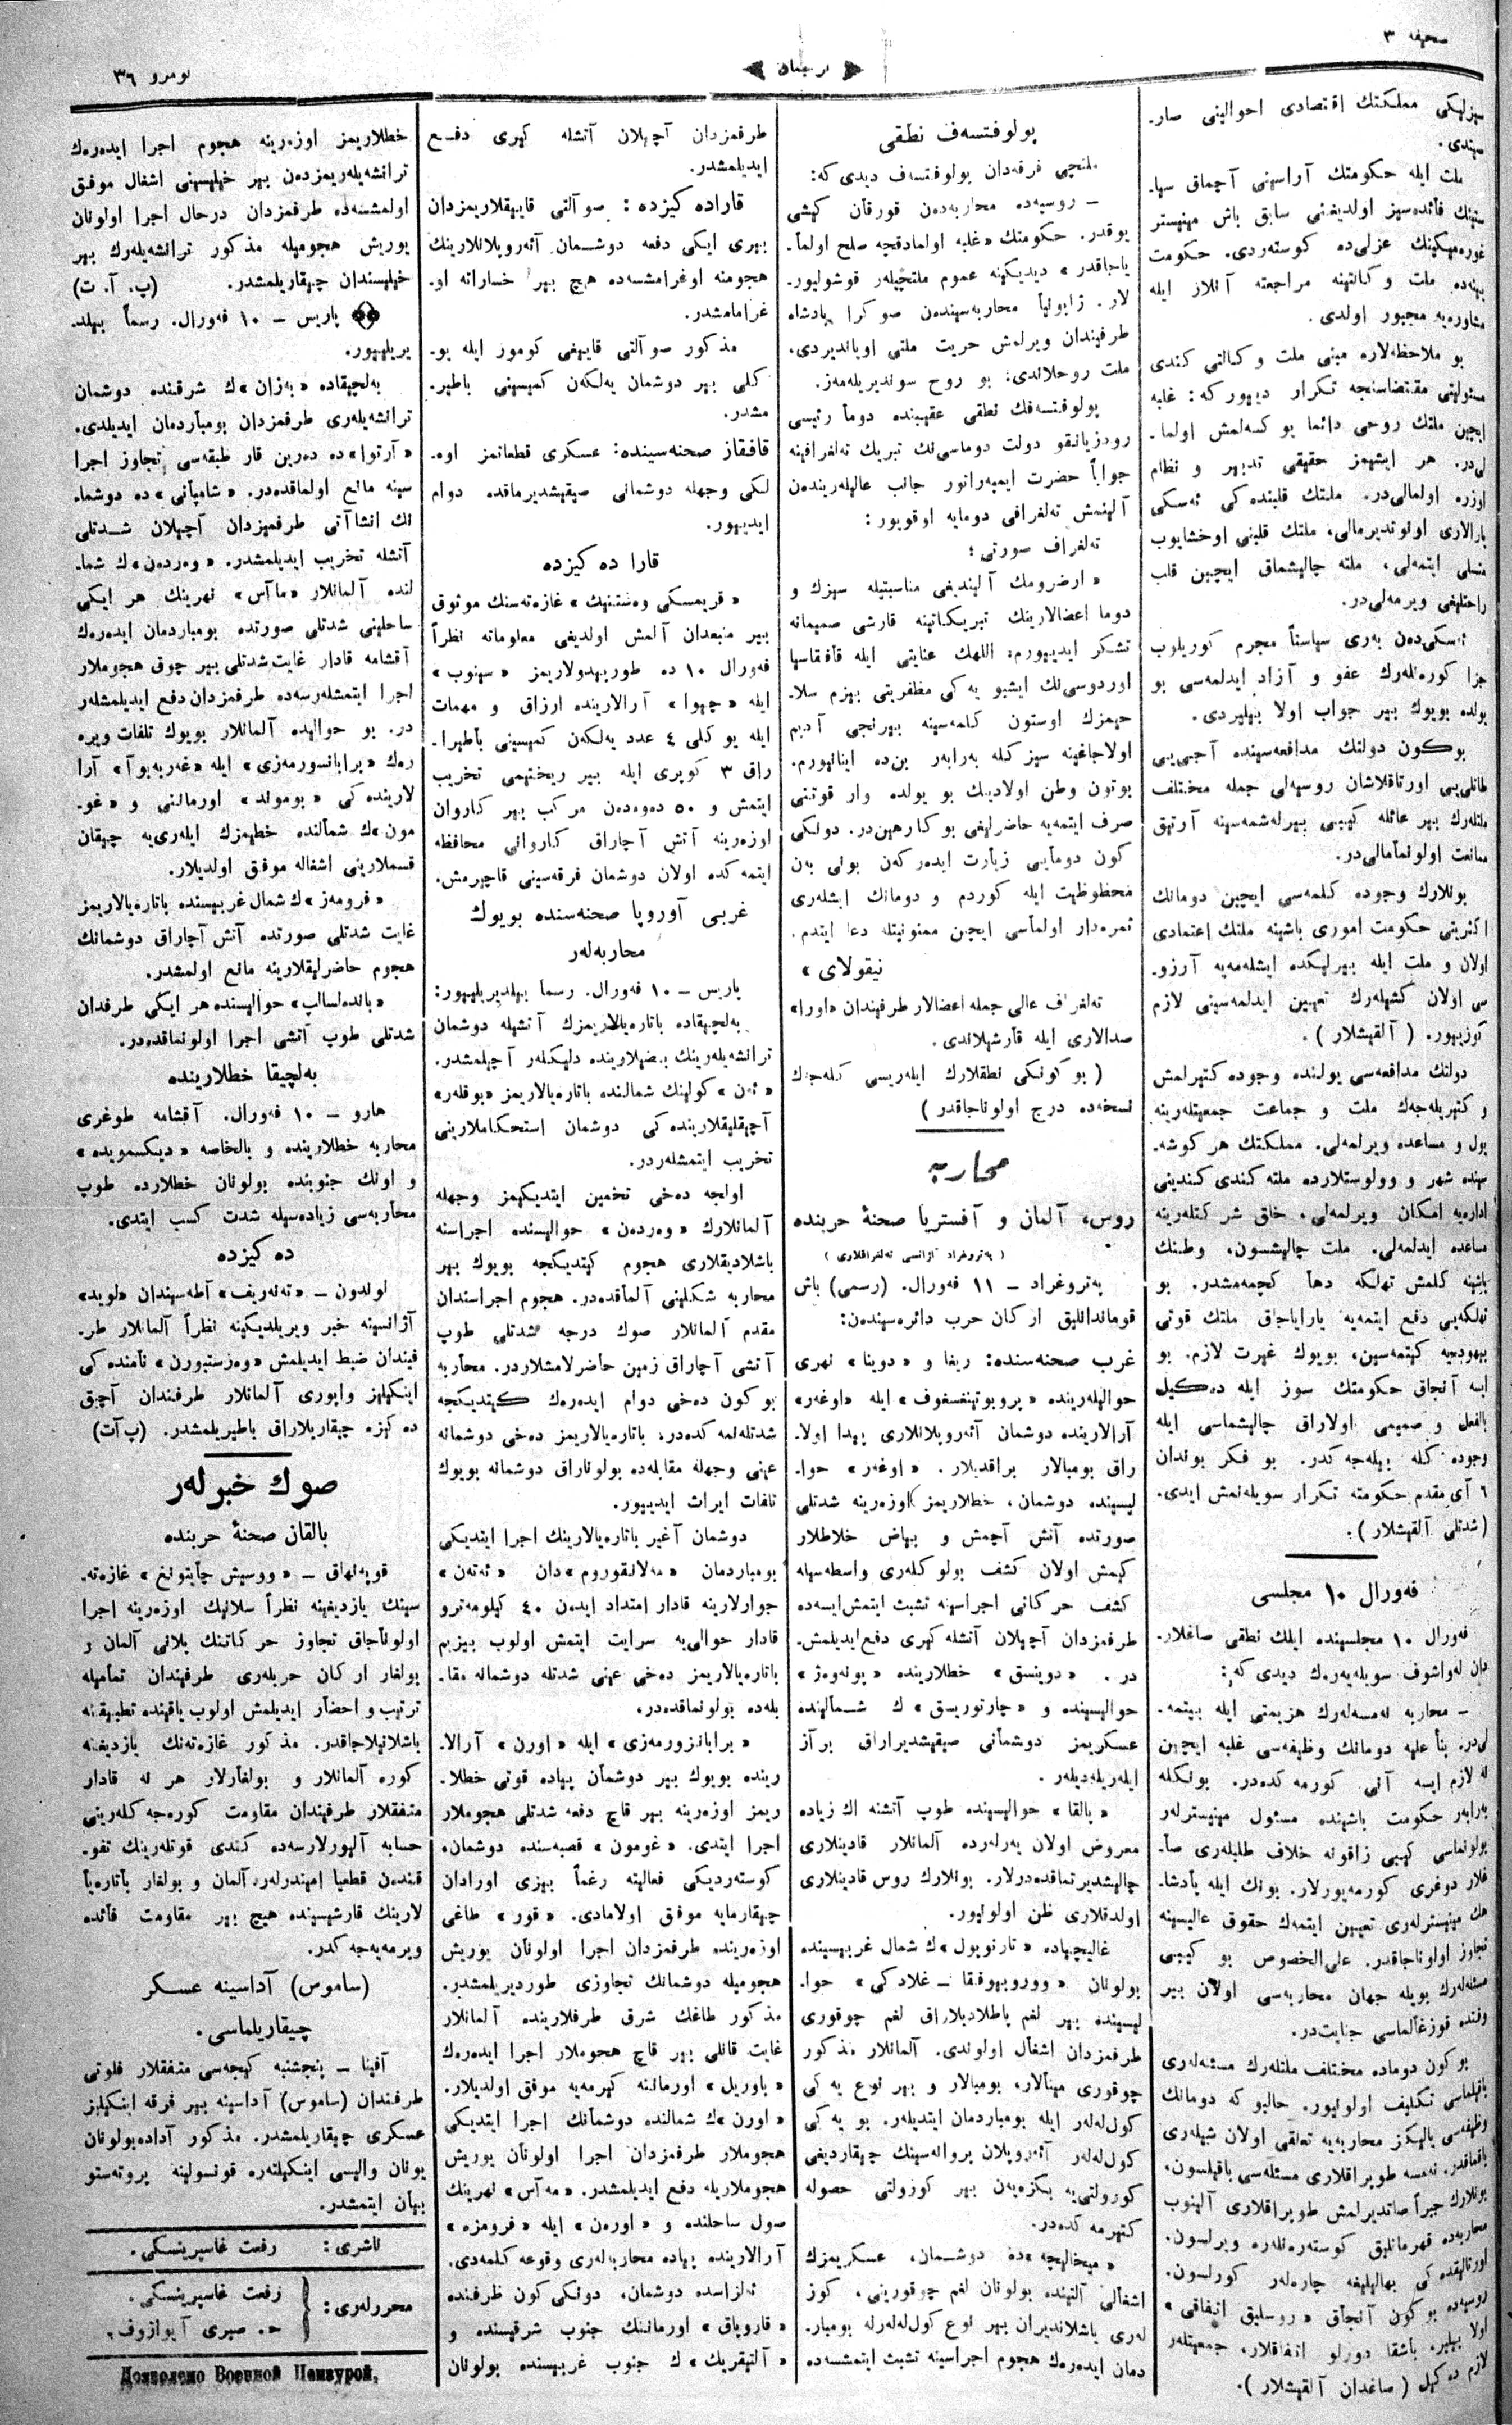 صحیفه ٣
ترجمان
نومرو ٣٦
سیزلیکی مملکتك اقتصادی احوالینی صار-
صیندی.
ملت ایله حکومتك آراسینی آچماق سیا-
ستینك فائده‌سیز اولدیغنی سابق باش مینیستر
غوره‌میکینك عزلی‌ده کوسته‌ردی. حکومت
ینه‌ده ملت وکالتینه مراجعته آنلار ایله
مشاوره‌یه مجبور اولدی.
بو ملاحظه‌لاره مبنی ملت وکالتی کندی
مسئولیتی مقتضاسنجه تکرار دییور که: غلبه
ایچین ملتك روحی دائما یوکسه‌لمش اولما-
لی‌در. هر ایشیمز حقیقی تدبیر و نظام
اوزره اولمالی‌در. ملتك قلبنده‌کی ئه‌سکی
یارالاری اولوتدیرمالی، ملتك قلبنی اوخشایوب
تسلی ایتمه‌لی، ملته چالیشماق ایچین قلب
راحتلیغی ویرمه‌لی‌در.
ئه‌سکی‌دن به‌ری سیاستاً مجرم کوریلوب
جزا کوره‌نله‌رك عفو و آزاد ایدلمه‌سی بو
یولده بویوك بیر جواب اولا بیلیردی.
بوکون دولتك مدافعه‌سینده آجی‌یی
طاتلی‌یی اورتاقلاشان روسیه‌لی جمله مختلف
ملتله‌رك بیر عائله کیبی بیرله‌شمه‌سینه آرتیق
ممانعت اولونمامالی‌در.
بونلارك وجوده کلمه‌سی ایچین دومانك
اکثریتی حکومت اموری باشینه ملتك اعتمادی
اولان و ملت ایله بیرلیکده ایشله‌مه‌یه آرزو-
سی اولان کشیله‌رك تعیین ایدلمه‌سینی لازم
کوزییور. ( آلقیشلار ).
دولتك مدافعه‌سی یولنده وجوده کتیرلمش
و کتیریله‌جه‌ك ملت و جماعت جمعیتله‌رینه
یول و مساعده ویرلمه‌لی. مملکتك هر کوشه-
سینده شهر و وولوستلارده ملته کندی کندینی
اداره‌یه امکان ویرلمه‌لی، خلق شرکتله‌رینه
مساعده ایدلمه‌لی. ملت چالیشسون، وطنك
باشینه کلمش تهلکه دها کچمه‌مشدر. بو
تهلکه‌یی دفع ایتمه‌یه یارایاجاق ملتك قوتی
بیهوده‌یه کیتمه‌سین، بویوك غیرت لازم. بو
ایسه آنجاق حکومتك سوز ایله ده‌کیل
بالفعل و صمیمی اولاراق چالیشماسی ایله
وجوده کله بیله‌جه‌کدر. بو فکر بوندان
٦ آی مقدم حکومته تکرار سویله‌نمش ایدی.
(شدتلی آلقیشلار).
فه‌ورال ١٠ مجلسی
فه‌ورال ١٠ مجلسینده ایلك نطقی صاغلار-
دان له‌واشوف سویله‌یه‌رك دیدی که:
ـ محاربه نه‌مسه‌له‌رك هزیمتی ایله بیتمه-
لی‌در. بناءً علیه دومانك وظیفه‌سی غلبه ایچین
نه لازم ایسه آنی کورمه‌کده‌در. بونکله
به‌رابه‌ر حکومت باشینده مسئول مینیسترله‌ر
بولونماسی کیبی زاقونه خلاف طلبله‌ری صا-
غلار دوغری کورمه‌یورلار. بونك ایله پادشا-
هك مینیسترله‌ری تعیین ایتمه‌ك حقوق عالیسینه
تجاوز اولوناجاقدر. علی‌الخصوص بو کیبی
مسئله‌له‌رك بویله جهان محاربه‌سی اولان بیر
وقتده قوزغالماسی جنایت‌در.
بوکون دوماده مختلف ملتله‌رك مسئله‌له‌ری
باقیلماسی تکلیف اولونیور. حالبو که دومانك
وظیفه‌سی یالیکز محاربه‌یه تعلقی اولان شیله‌ری
باقماقدر. نه‌مسه طوپراقلاری مسئله‌سی باقیلسون،
بونلارك جبراً صاتدیرلمش طوپراقلاری آلینوب
محاربه‌ده قهرمانلیق کوسته‌ره‌نله‌ره ویرلسون.
اورتالیقده‌کی بهالیلیغه چاره‌له‌ر کورلسون.
روسیه‌ده بوکون آنجاق «روسلیق اتفاقی»
اولا بیلیر، باشقا دورلو اتفاقلار، جمعیتله‌ر
لازم ده‌کیل ( صاغدان آلقیشلار ).
پولوفتسه‌ف نطقی
ملتچی فرقه‌دان پولوفتسه‌ف دیدی که:
ـ روسیه‌ده محاربه‌دن قورقان کیشی
یوقدر. حکومتك «غلبه اولمادقچه صلح اولما-
یاجاقدر» دیدیکینه عموم ملتچیله‌ر قوشولیور-
لار. زاپولیا محاربه‌سیندن صوکرا پادشاه
طرفیندان ویرلمش حریت ملتی اویاندیردی،
ملت روحلاندی؛ بو روح سوندیریله‌مه‌ز.
پولوفتسه‌فك نطقی عقبینده دوما رئیسی
رودزیانقو دولت دوماسی‌نك تبریك ته‌لغرافینه
جواباً حضرت ایمپه‌راتور جانب عالیله‌ریندن
آلینمش ته‌لغرافی دومایه اوقویور:
ته‌لغراف صورتی؛
«ارضرومك آلیندیغی مناسبتیله سیزك و
دوما اعضالارینك تبریکاتینه قارشی صمیمانه
تشکر ایدییورم؛ اللهك عنایتی ایله قافقاسیا
اوردوسی‌نك ایشبو یه‌کی مظفریتی بیزم سلا-
حیمزك اوستون کلمه‌سینه بیرنجی آدیم
اولاجاغینه سیزکله به‌رابه‌ر بن‌ده اینانیورم.
بوتون وطن اولادینك بو یولده وار قوتنی
صرف ایتمه‌یه حاضرلیغی بوکارهین‌در. دونکی
کون دومایی زیارت ایده‌رکه‌ن بونی به‌ن
محظوظیت ایله کوردم و دومانك ایشله‌ری
ثمره‌دار اولماسی ایچین ممنونیتله دعا ایتدم.
نیقولای »
ته‌لغراف عالی جمله اعضالار طرفیندان «اورا»
صدالاری ایله قارشیلاندی.
( بو کونکی نطقلارك ایله‌ریسی کله‌جك
نسخه‌ده درج اولوناجاقدر )
محاربه
روس، آلمان و آفستریا صحنهٔ حربنده
( په‌تروغراد آژانسی ته‌لغرافلاری )
په‌تروغراد ـ ١١ فه‌ورال. (رسمی) باش
قوماندانلیق ارکان حرب دائره‌سیندن:
غرب صحنه‌سنده: ریغا و «دوینا» نهری
حوالیله‌رینده ایله «اوغه‌ر»
آرالارینده دوشمان آئه‌روپلانلاری پیدا اولا-
راق بومبالار براقدیلار. «اوغه‌ر» حوا-
لیسینده دوشمان، خطلاریمز اوزه‌رینه شدتلی
صورتده آتش آچمش و بیاض خلاطلار
کیمش اولان کشف بولوکله‌ری واسطه‌سیله
کشف حرکاتی اجراسینه تشبث ایتمش‌ایسه‌ده
طرفمزدان آچیلان آتشله کیری دفع‌ایدیلمش-
در. «دوینسق» خطلارینده
حوالیسینده و «چارتوریسق»ك شمالینده
عسکریمز دوشمانی صیقیشدیراراق براز
ایله‌ریله‌دیله‌ر.
«یالقا» حوالیسینده طوپ آتشنه اك زیاده
معروض اولان یه‌رله‌رده آلمانلار قادینلاری
چالیشدیرتماقده‌درلار. بونلارك روس قادینلاری
اولدقلاری ظن اولونیور.
غالیچیاده «تارنوپول»ك شمال غربیسینده
بولونان «ووروبیوفقا ـ غلادکی» حوا-
لیسینده بیر لغم پاطلادیلاراق لغم چوقوری
طرفمزدان اشغال اولوندی. آلمانلار مذکور
چوقوری مینالار، بومبالار و بیر نوع یه‌کی
کول‌له‌له‌ر ایله بومباردمان ایتدیله‌ر. بو یه‌کی
کول‌له‌له‌ر آئه‌روپلان پروانه‌سینك چیقاردیغی
کورولتی‌یه بکزه‌یه‌ن بیر کوزولتی حصوله
کتیرمه‌کده‌در.
«میخالچه»ده دوشمان، عسکریمزك
اشغالی آلتینده بولونان لغم چوقورینی، کوز
له‌ری یاشلاندیران بیر نوع کول‌له‌له‌رله بومبار-
دمان ایده‌ره‌ك هجوم اجراسینه تشبث ایتمشسه‌ده
طرفمزدان آچیلان آتشله کیری دفع
ایدیلمشدر.
قاراده کیزده: صو آلتی قاییقلاریمزدان
بیری ایکی دفعه دوشمان آئه‌روپلانلارینك
هجومنه اوغرامشسه‌ده هیچ بیر خساراته او-
غرامامشدر.
مذکور صو آلتی قاییغی کومور ایله یو-
کلی بیر دوشمان یه‌لکه‌ن کمیسینی باطیر-
مشدر.
قافقاز صحنه‌سینده: عسکری قطعاتمز اوه-
لکی وجهله دوشمانی صیقیشدیرماقده دوام
ایدییور.
قارا ده کیزده
«قریمسکی وه‌ستنیك» غازه‌ته‌سنك موثوق
بیر منبعدان آلمش اولدیغی معلوماته نظراً
فه‌ورال ١٠ ده طورپیدولاریمز «سینوب»
ایله «چیوا» آرالارینده ارزاق و مهمات
ایله یوکلی ٤ عدد یه‌لکه‌ن کمیسینی باطیرا-
راق ٣ کوپری ایله بیر ریختیمی تخریب
ایتمش و ٥٠ ده‌وه‌دن مرکب بیر کاروان
اوزه‌رینه آتش آچاراق کاروانی محافظه
ایتمه‌کده اولان دوشمان فرقه‌سینی قاچیرمش.
غربی آوروپا صحنه‌سنده بویوك
محاربه‌له‌ر
پاریس ـ ١٠ فه‌ورال. رسما بیلدیریلییور:
به‌لچیقاده باتاره‌یالاریمزك آتشیله دوشمان
ترانشه‌یله‌رینك بعضیلارینده دلیکله‌ر آچیلمشدر.
« ئه‌ن » کولینك شمالنده باتاره‌یالاریمز
آچیقلیقلارینده‌کی دوشمان استحکاملارینی
تخریب ایتمشله‌ردر.
اولجه ده‌خی تخمین ایتدیکیمز وجهله
آلمانلارك «وه‌ردون» حوالیسنده اجراسنه
باشلادیقلاری هجوم کیتدیکجه بویوك بیر
محاربه شکلینی آلماقده‌در. هجوم اجراسندان
مقدم آلمانلار صوك درجه شدتلی طوپ
آتشی آچاراق زمین حاضرلامشلاردر. محاربه
بوکون ده‌خی دوام ایده‌رك کیتدیکجه
شدتله‌نمه‌کده‌در، باتاره‌یالاریمز ده‌خی دوشمانه
عینی وجهله مقابله‌ده بولوناراق دوشمانه بویوك
تلفات ایراث ایدییور.
دوشمان آغیر باتاره‌یالارینك اجرا ایتدیکی
بومباردمان «مه‌لانقوروم»دان «ئه‌ته‌ن»
جوارلارینه قادار امتداد ایده‌ن ٤٠ کیلومه‌ترو
قادار حوالی‌یه سرایت ایتمش اولوب بیزیم
باتاره‌یالاریمز ده‌خی عینی شدتله دوشمانه مقا-
بله‌ده بولونماقده‌در،
«برابانزورمه‌زی» ایله «اورن» آرالا-
رینده بویوك بیر دوشمان پیاده قوتی خطلا-
ریمز اوزه‌رینه بیر قاچ دفعه شدتلی هجوملار
اجرا ایتدی. «غومون» قصبه‌سنده دوشمان،
کوسته‌ردیکی فعالیته رغماً بیزی اورادان
چیقارمایه موفق اولامادی. «قور» طاغی
اوزه‌رینده طرفمزدان اجرا اولونان یوریش
هجومیله دوشمانك تجاوزی طوردیریلمشدر.
مذکور طاغك شرق طرفلارینده آلمانلار
غایت قانلی بیر قاچ هجوملار اجرا ایده‌ره‌ك
«باوریل» اورمانینه کیرمه‌یه موفق اولدیلار.
«اورن»ك شمالنده دوشمانك اجرا ایتدیکی
هجوملار طرفمزدان اجرا اولونان یوریش
هجوملاریله دفع ایدیلمشدر. «مه‌آس» نهرینك
صول ساحلنده و «اوره‌ن» ایله «فرومزه»
آرالارینده پیاده محاربه‌له‌ری وقوعه کلمه‌دی.
ئه‌لزاسده دوشمان، دونکی کون ظرفنده
«قارویاق» اورماننك جنوب شرقیسنده و
«آلتیقریك»ك جنوب غربیسنده بولونان
خطلاریمز اوزه‌رینه هجوم اجرا ایده‌ره‌ك
ترانشه‌یله‌ریمزدن بیر خیلیسینی اشغال موفق
اولمشسه‌ده طرفمزدان درحال اجرا اولونان
یوریش هجومیله مذکور ترانشه‌یله‌رك بیر
خیلیسندان چیقاریلمشدر. (پ. آ. ت)
پاریس ـ ١٠ فه‌ورال. رسماً بیلد-
یریلییور.
به‌لچیقاده «به‌زان»ك شرقنده دوشمان
ترانشه‌یله‌ری طرفمزدان بومباردمان ایدیلدی.
«آرتوا»ده ده‌رین قار طبقه‌سی تجاوز اجرا
سینه مانع اولماقده‌در. «شامپانی»ده دوشما-
نك انشاآتی طرفمزدان آچیلان شدتلی
آتشله تخریب ایدیلمشدر. «وه‌ردون»ك شما-
لنده آلمانلار «ماآس» نهرینك هر ایکی
ساحلینی شدتلی صورتده بومباردمان ایده‌ره‌ك
آقشامه قادار غایت شدتلی بیر چوق هجوملار
اجرا ایتمشله‌رسه‌ده طرفمزدان دفع ایدیلمشله‌ر
در. بو حوالیده آلمانلار بویوك تلفات ویره
ره‌ك «برابانسورمه‌زی» ایله «غه‌ربه‌بوآ» آرا
لارینده‌کی «بوموند» اورمانی و «غو-
مون»ك شمالنده خطیمزك ایله‌ری‌یه چیقان
قسملارینی اشغاله موفق اولدیلار.
«فرومه‌ز»ك شمال غربیسنده باتاره‌یالاریمز
غایت شدتلی صورتده آتش آچاراق دوشمانك
هجوم حاضرلیقلارینه مانع اولمشدر.
«بانده‌ساپ» حوالیسنده هر ایکی طرفدان
شدتلی طوپ آتشی اجرا اولونماقده‌در.
به‌لچیقا خطلارینده
هاور ـ ١٠ فه‌ورال. آقشامه طوغری
محاربه خطلارینده و بالخاصه «دیکسمویده»
و اونك جنوبنده بولونان خطلارده طوپ
محاربه‌سی زیاده‌سیله شدت کسب ایتدی.
ده کیزده
لوندون ـ «ته‌نه‌ریف» آطه‌سیندان «لوید»
آژانسینه خبر ویریلدیکینه نظراً آلمانلار طر-
فیندان ضبط ایدیلمش «وه‌زستیورن» نامنده‌کی
اینکیلیز واپوری آلمانلار طرفندان آچیق
ده‌کزه چیقاریلاراق باطیریلمشدر. (پ‌آت)
صوك خبرله‌ر
بالقان صحنهٔ حربنده
قوپه‌نهاق ـ غازه‌ته-
سینك یازدیغینه نظراً سلانیك اوزه‌رینه اجرا
اولوناجاق تجاوز حرکاتنك پلانی آلمان و
بولغار ارکان حربله‌ری طرفیندان تمامیله
ترتیب و احضار ایدیلمش اولوب یاقینده تطبیقنه
باشلانیلاجاقدر. مذکور غازه‌ته‌نك یازدیغنه
کوره آلمانلار و بولغارلار هر نه قادار
متفقلار طرفیندان مقاومت کوره‌جه‌کله‌رینی
حسابه آلیورلارسه‌ده کندی قوتله‌رینك تفو-
قندن قطعیا امیندرله‌ر. آلمان و بولغار باتاره‌یا
لارینك قارشیسینده هیچ بیر مقاومت فائده
ویرمه‌یه‌جه‌کدر.
(ساموس) آداسینه عسکر
چیقاریلماسی.
آفینا ـ پنجشنبه کیجه‌سی متفقلار فلوتی
طرفندان (ساموس) آداسینه بیر فرقه اینکیلیز
عسکری چیقاریلمشدر. مذکور آداده‌بولونان
یونان والیسی اینکیلته‌ره قونسولینه پروته‌ستو
بیان ایتمشدر.
ناشری: رفعت غاسپرینسکی.
محررله‌ری: رفعت غاسپرینسکی.
ح. صبری آیوازوف.
Дозволено Военной Цензурой.